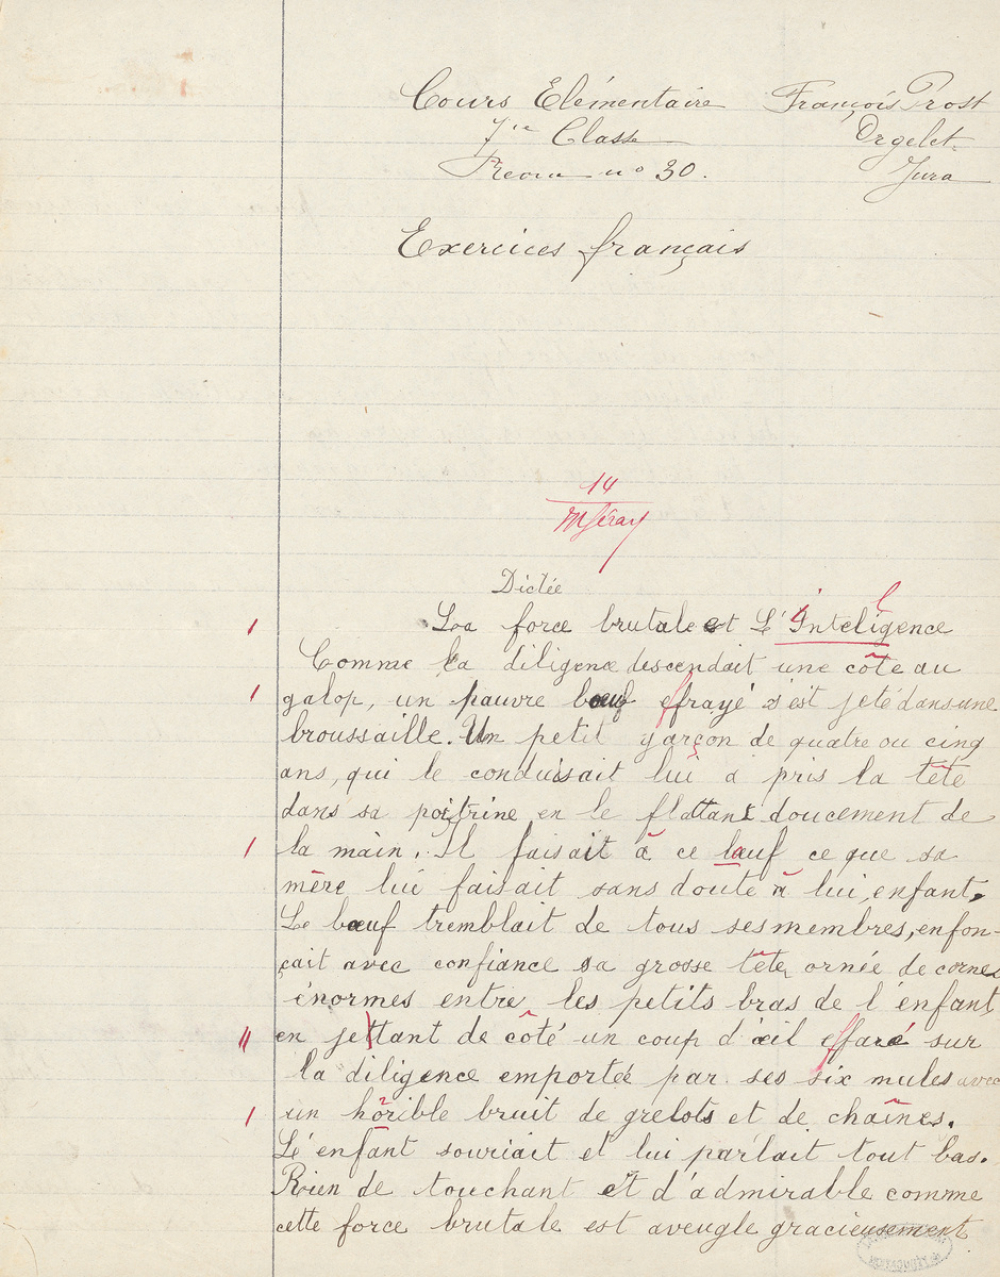 Cours Elémentaire François Prost
1re Classe Orgelet
Revue no 30. Jura
Exercices français
14
Dictée
La force brutale et L'Inteligence
Comme la diligence descendait une côte au
galop, un pauvre bœuf effrayé s'est jeté dans une
broussaille. Un petit garçon de quatre ou cinq
ans, qui le conduisait lui a pris la tête
dans sa poitrine en le flattant doucement de
la main. Il faisait à ce bœuf ce que sa
mère lui faisait sans doute à lui, enfant.
Le bœuf tremblait de tous ses membres, enfon-
çait avec confiance sa grosse tête ornée de cornes
énormes entre les petits bras de l'enfant
en jettant de côté un coup d'œil effaré sur
la diligence emportée par ses six mules avec
un horible bruit de grelots et de chaînes.
Lé enfant souriait et lui parlait tout bas.
Rien de touchant et d'admirable comme
cette force brutale est aveugle gracieusement